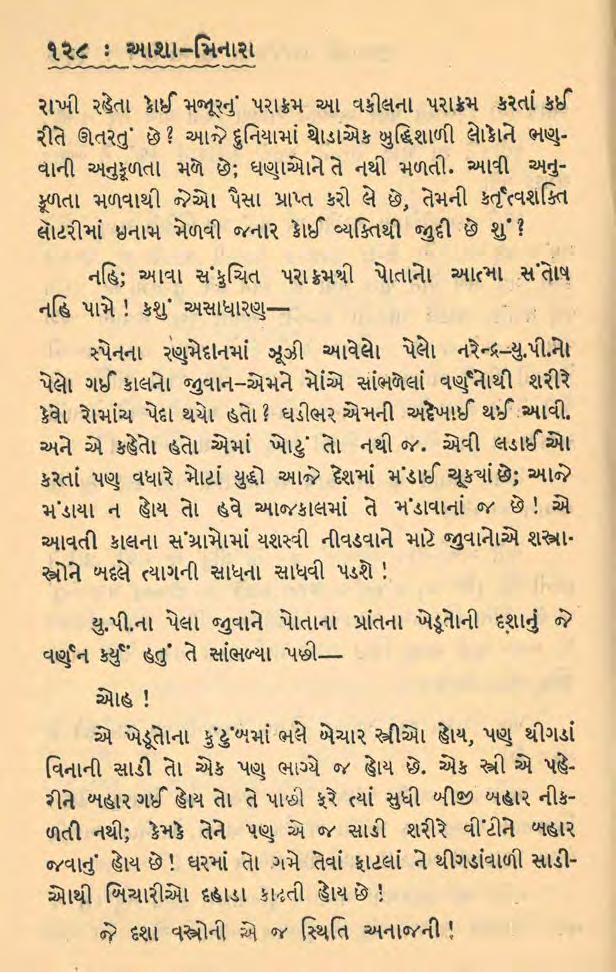 ૧૨૮ : આશા-મિનારા
રાખી રહેતા કોઈ મજૂરનું પરાક્રમ આ વકીલના પરાક્રમ કરતાં કઈ
રીતે ઊતરતું છે? આજે દુનિયામાં થોડાએક બુદ્ધિશાળી લોકોને ભણ-
વાની અનુકૂળતા મળે છે; ઘણાઓને તે નથી મળતી. આવી અનુ-
કૂળતા મળવાથી જેઓ પૈસા પ્રાપ્ત કરી લે છે, તેમની કર્તૃત્વશક્તિ
લૉટરીમાં ઇનામ મેળવી જનાર કોઈ વ્યક્તિથી જુદી છે શું?
નહિ; આવા સંકુચિત પરાક્રમથી પોતાનો આત્મા સંતોષ
નહિ પામે! કશું અસાધારણ—
સ્પેનના રણમેદાનમાં ઝૂઝી આવેલો પેલો નરેન્દ્ર–યુ.પી.નો
પેલો ગઈ કાલનો જુવાન–એમને મોંએ સાંભળેલાં વર્ણનોથી શરીરે
કેવો રોમાંચ પેદા થયો હતો? ઘડીભર એમની અદેખાઈ થઈ આવી.
અને એ કહેતો હતો એમાં ખોટું તો નથી જ. એવી લડાઈઓ
કરતાં પણ વધારે મોટાં યુદ્ધો આજે દેશમાં મંડાઈ ચૂક્યાં છે; આજે
મંડાયા ન હોય તો હવે આજકાલમાં તે મંડાવાનાં જ છે! એ
આવતી કાલના સંગ્રામોમાં યશસ્વી નીવડવાને માટે જુવાનોએ શસ્ત્રા-
સ્ત્રોને બદલે ત્યાગની સાધના સાધવી પડશે!
યુ.પી.ના પેલા જુવાને પોતાના પ્રાંતના ખેડૂતોની દશાનું જે
વર્ણન કર્યું હતું તે સાંભળ્યા પછી—
ઓહ !
એ ખેડૂતોના કુટુંબમાં ભલે બેચાર સ્ત્રીઓ હોય, પણ થીગડાં
વિનાની સાડી તો એક પણ ભાગ્યે જ હોય છે. એક સ્ત્રી એ પહે-
રીને બહાર ગઈ હોય તો તે પાછી ફરે ત્યાં સુધી બીજી બહાર નીક-
ળતી નથી; કેમકે તેને પણ એ જ સાડી શરીરે વીંટીને બહાર
જવાનું હોય છે! ઘરમાં તો ગમે તેવાં ફાટલાં ને થીગડાંવાળી સાડી-
ઓથી બિચારીઓ દહાડા કાઢતી હોય છે!
જે દશા વસ્ત્રોની એ જ સ્થિતિ અનાજની!